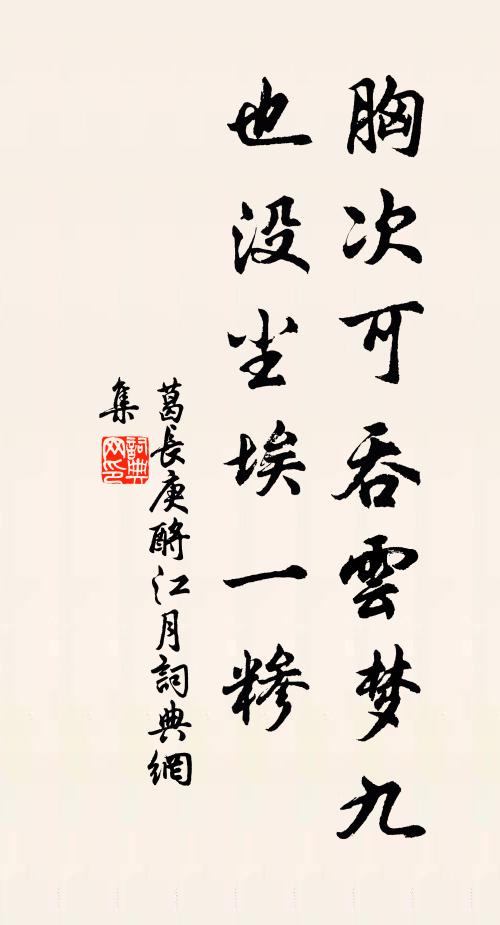 胸次可吞雲梦九
也没尘埃一糁
葛長庚酹江月詞典網
集
詞典网印